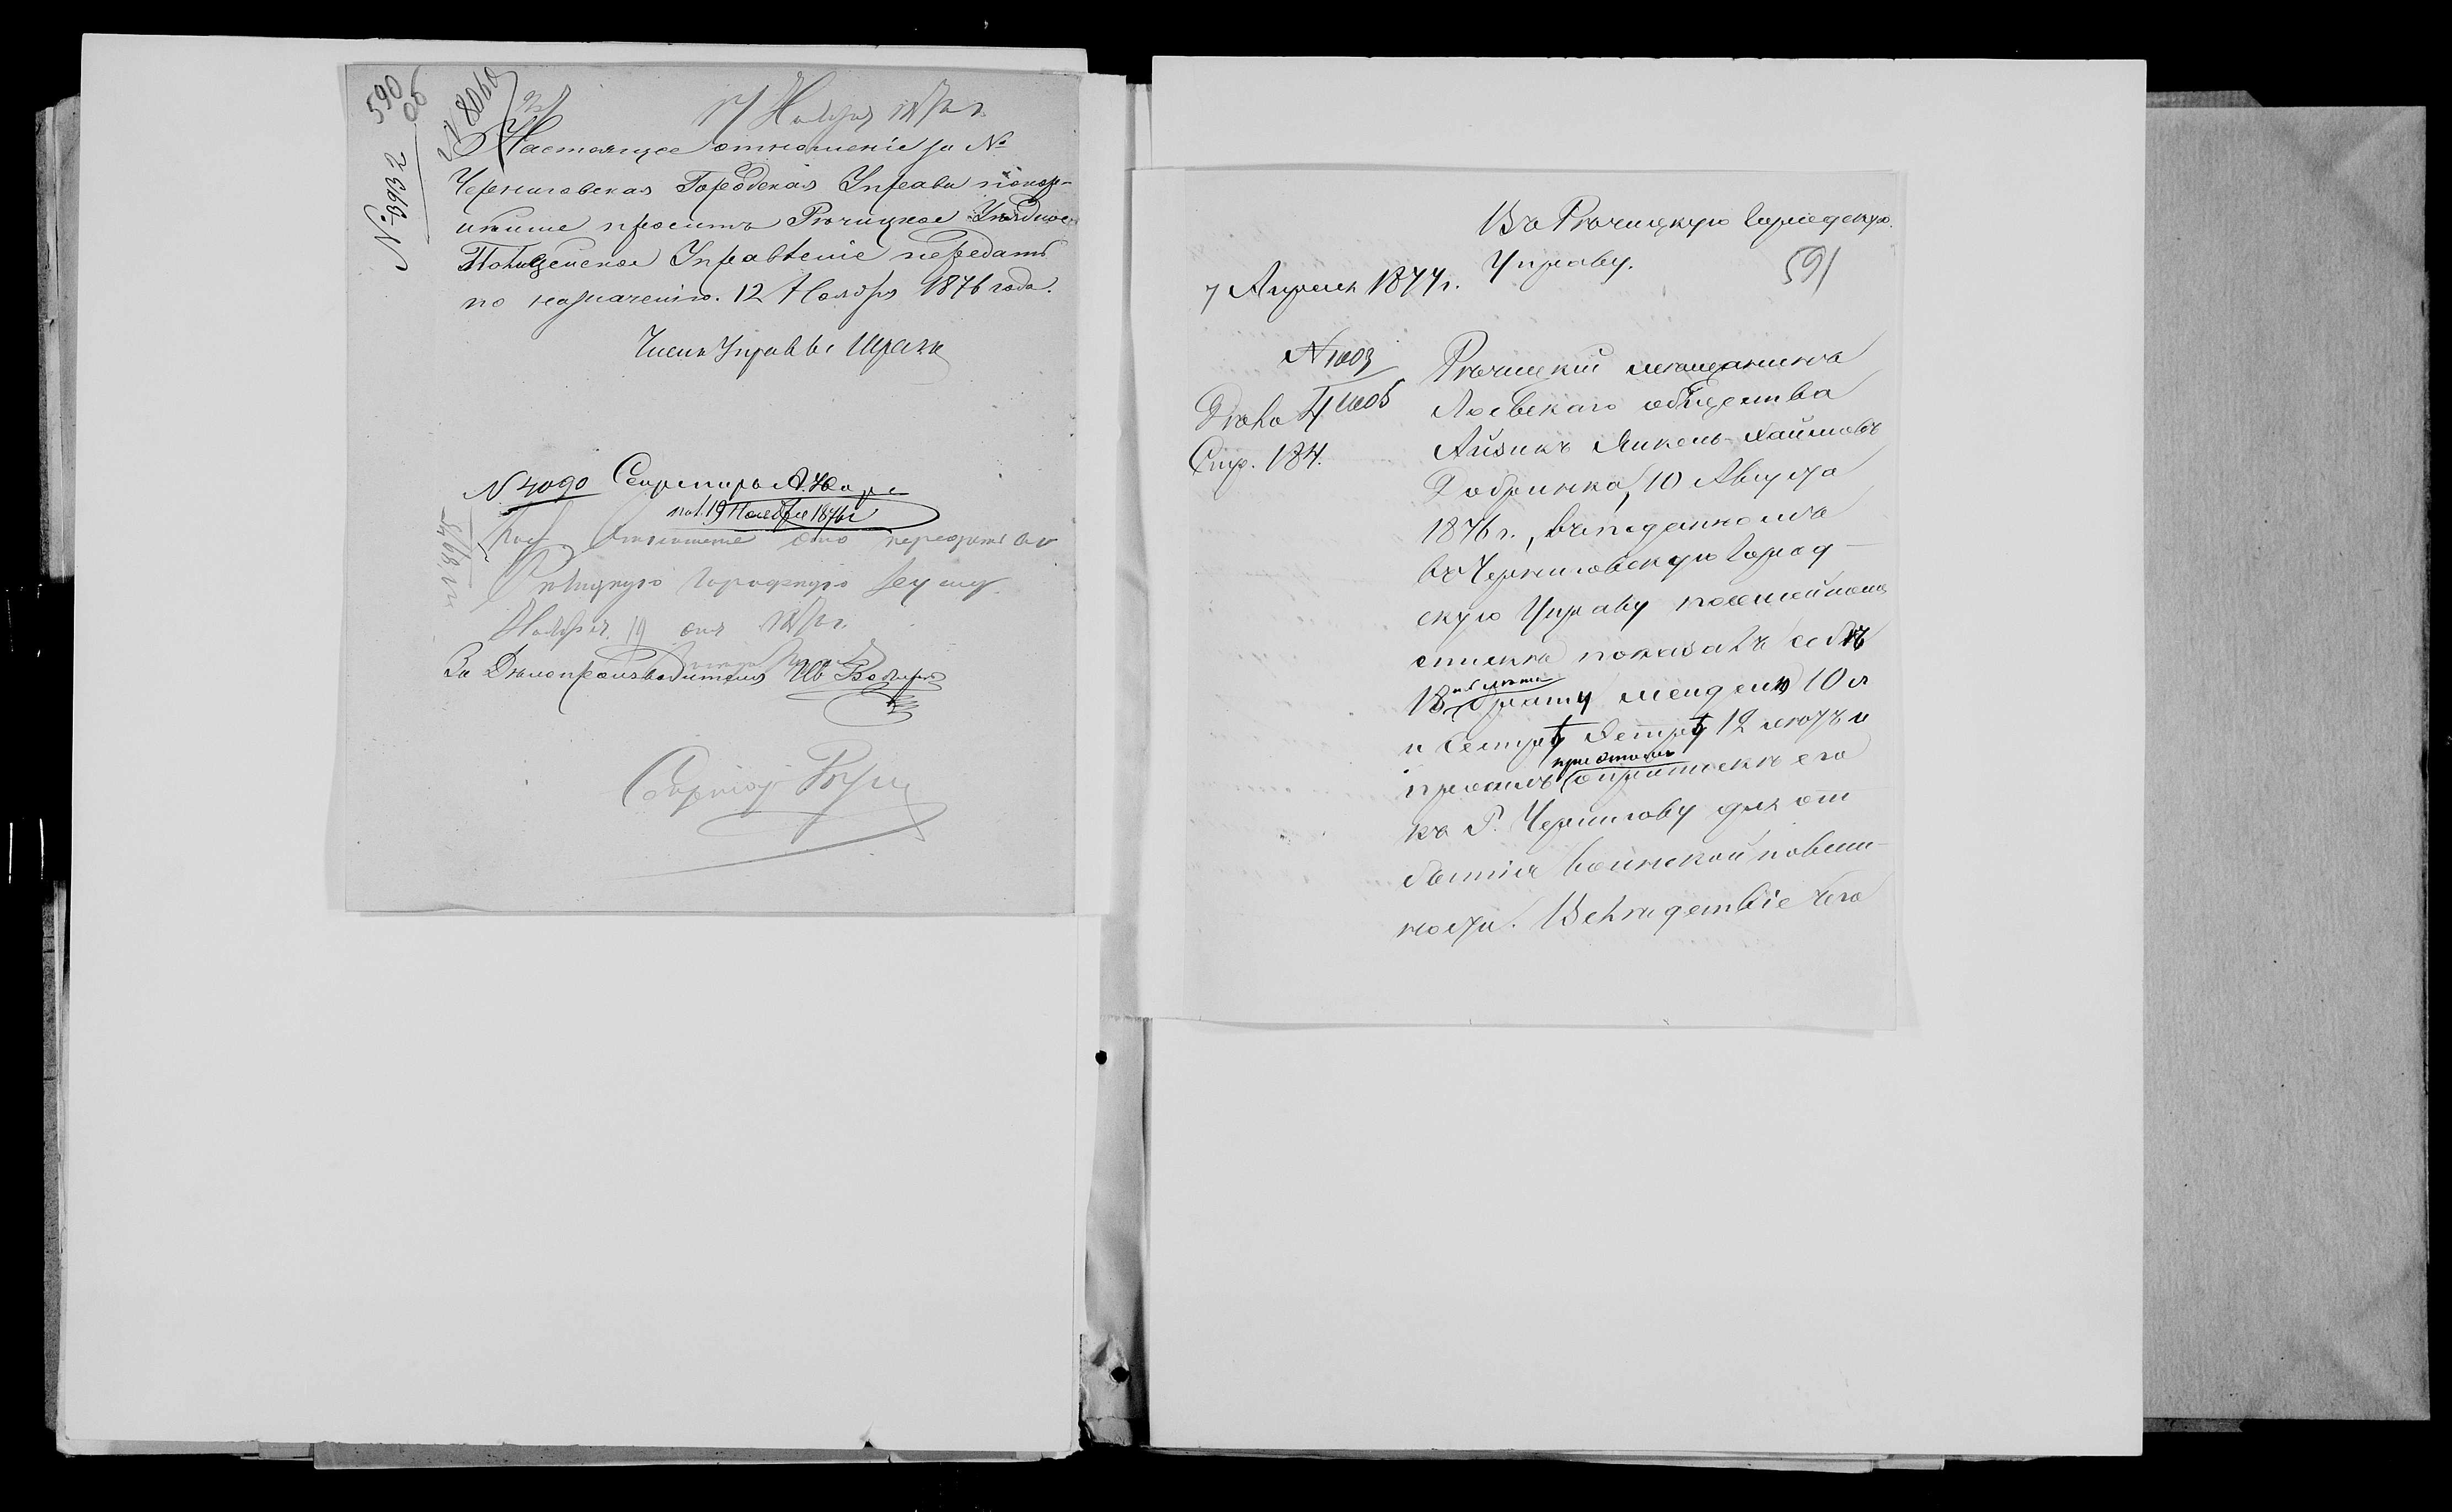 590 об
№ 8060
№ 3932
17 Ноября 1876 г.
Настоящее отношеніе за №
Черниговская Городская Управа покор-
нѣйше проситъ Рѣчицкое Уѣздное
Полицейское Управленіе передать
по назначенію. 12 Ноября 1876 года.
Членъ Управы
№ 4090 Секретарь
пол. 19 Ноября 1876 г.
отношеніе передать въ
Рѣчицкую Городскую
Ноября 19 дня 1876 г.
За Дѣлопроизводителя
Въ Рѣчицкую Городскую
Управу.
591
7 Апрѣля 1877 г.
№ 1003
Дѣло
Стр. 184.
Рѣчицкій мѣщанинъ
Лоевскаго общества
Айзикъ Янкель-Хаимовъ
Добринка, 10 Августа
1876 г., въ поданномъ
въ Черниговскую Город-
скую Управу посемейномъ
спискѣ показалъ себѣ
18 лѣтъ брату Менделю 10 л
и Сестрѣ 12 лѣтъ и
просилъ о припискѣ его
къ Г. Чернигову для от
бытія воинской повин-
ности. Вслѣдствіе чего